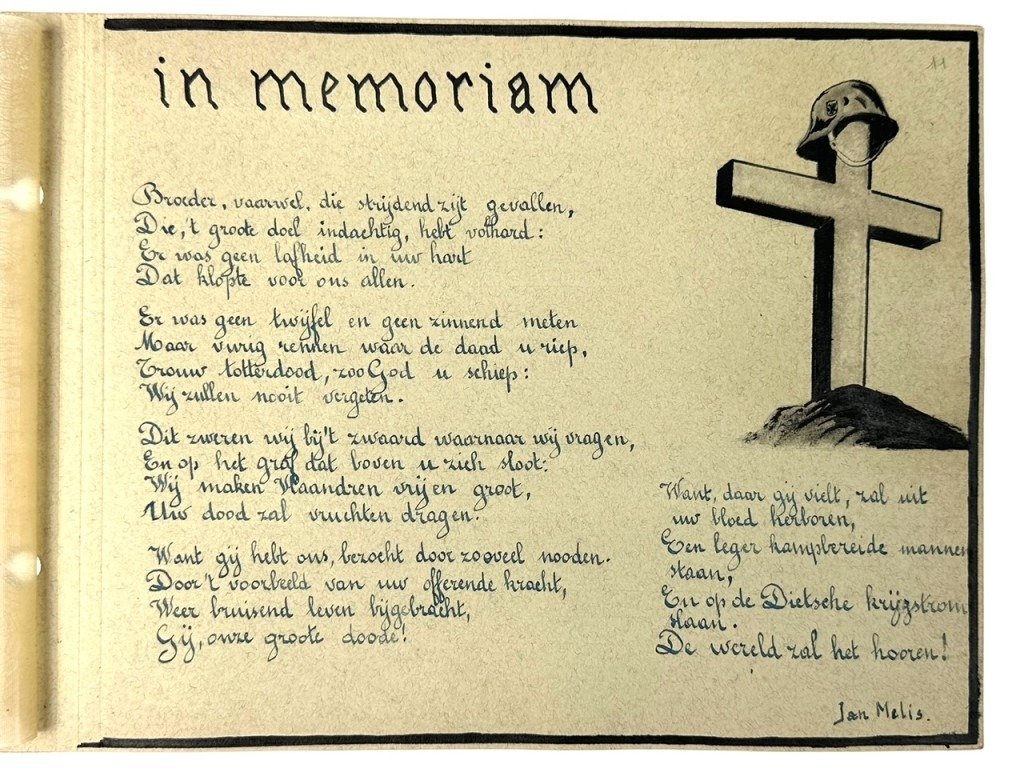 11
in memoriam
Broeder, vaarwel, die strijdend zijt gevallen,
Die,'t groote doel indachtig, hebt volhard:
Er was geen lafheid in uw hart
Dat klopte voor ons allen.
Er was geen twijfel en geen zinnend meten
Maar vurig rennen waar de daad u riep,
Trouw totterdood, zoo God u schiep:
Wij zullen nooit vergeten.
Dit zweren wij bij't zwaard waarnaar wij vragen,
En op het graf dat boven u zich sloot:
Wij maken Vlaandren vrij en groot,
Uw dood zal vruchten dragen.
Want gij hebt ons, bezocht door zooveel nooden.
Door't voorbeeld van uw offerende kracht,
Weer bruisend leven bijgebracht,
Gij, onze groote doode!
Want, daar gij vielt, zal uit
uw bloed herboren,
Een leger kampbereide mannen
staan,
En op de Dietsche krijgstrom
slaan.
De wereld zal het hooren!
Jan Melis.